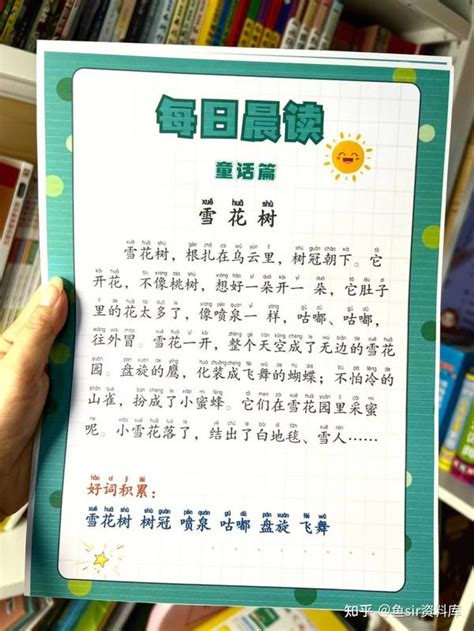 每日晨读
童话篇
xuě huā shù
雪花树
雪花树，根扎在乌云里，树冠朝下。它
开花，不像桃树，想好一朵开一朵，它肚子
里的花太多了，像喷泉一样，咕嘟、咕嘟，
往外冒。雪花一开，整个天空成了无边的雪花
园。盘旋的鹰，化装成飞舞的蝴蝶；不怕冷的
山雀，扮成了小蜜蜂。它们在雪花园里采蜜
呢。小雪花落了，结出了白地毯、雪人……
hǎo cí jī lěi
好词积累：
雪花树 树冠 喷泉 咕嘟 盘旋 飞舞
知乎 @鱼sir资料库